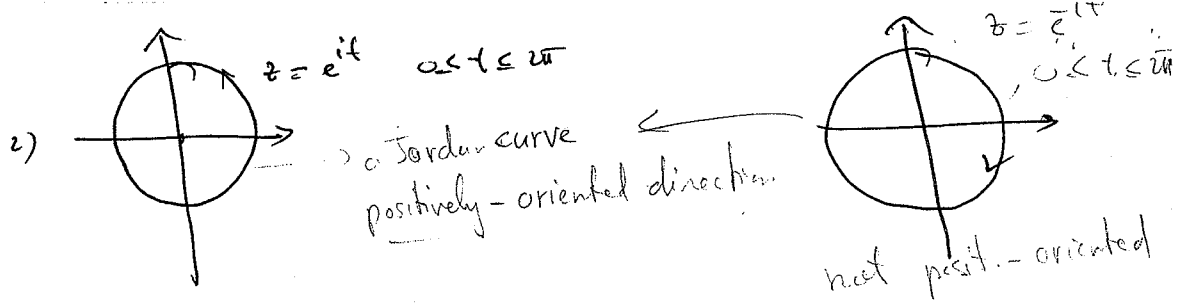 2)
z = e^{it} 0 ≤ t ≤ 2π
a Jordan curve
positively - oriented direction
z = e^{-it}
, 0 ≤ t ≤ 2π
not posit. - oriented